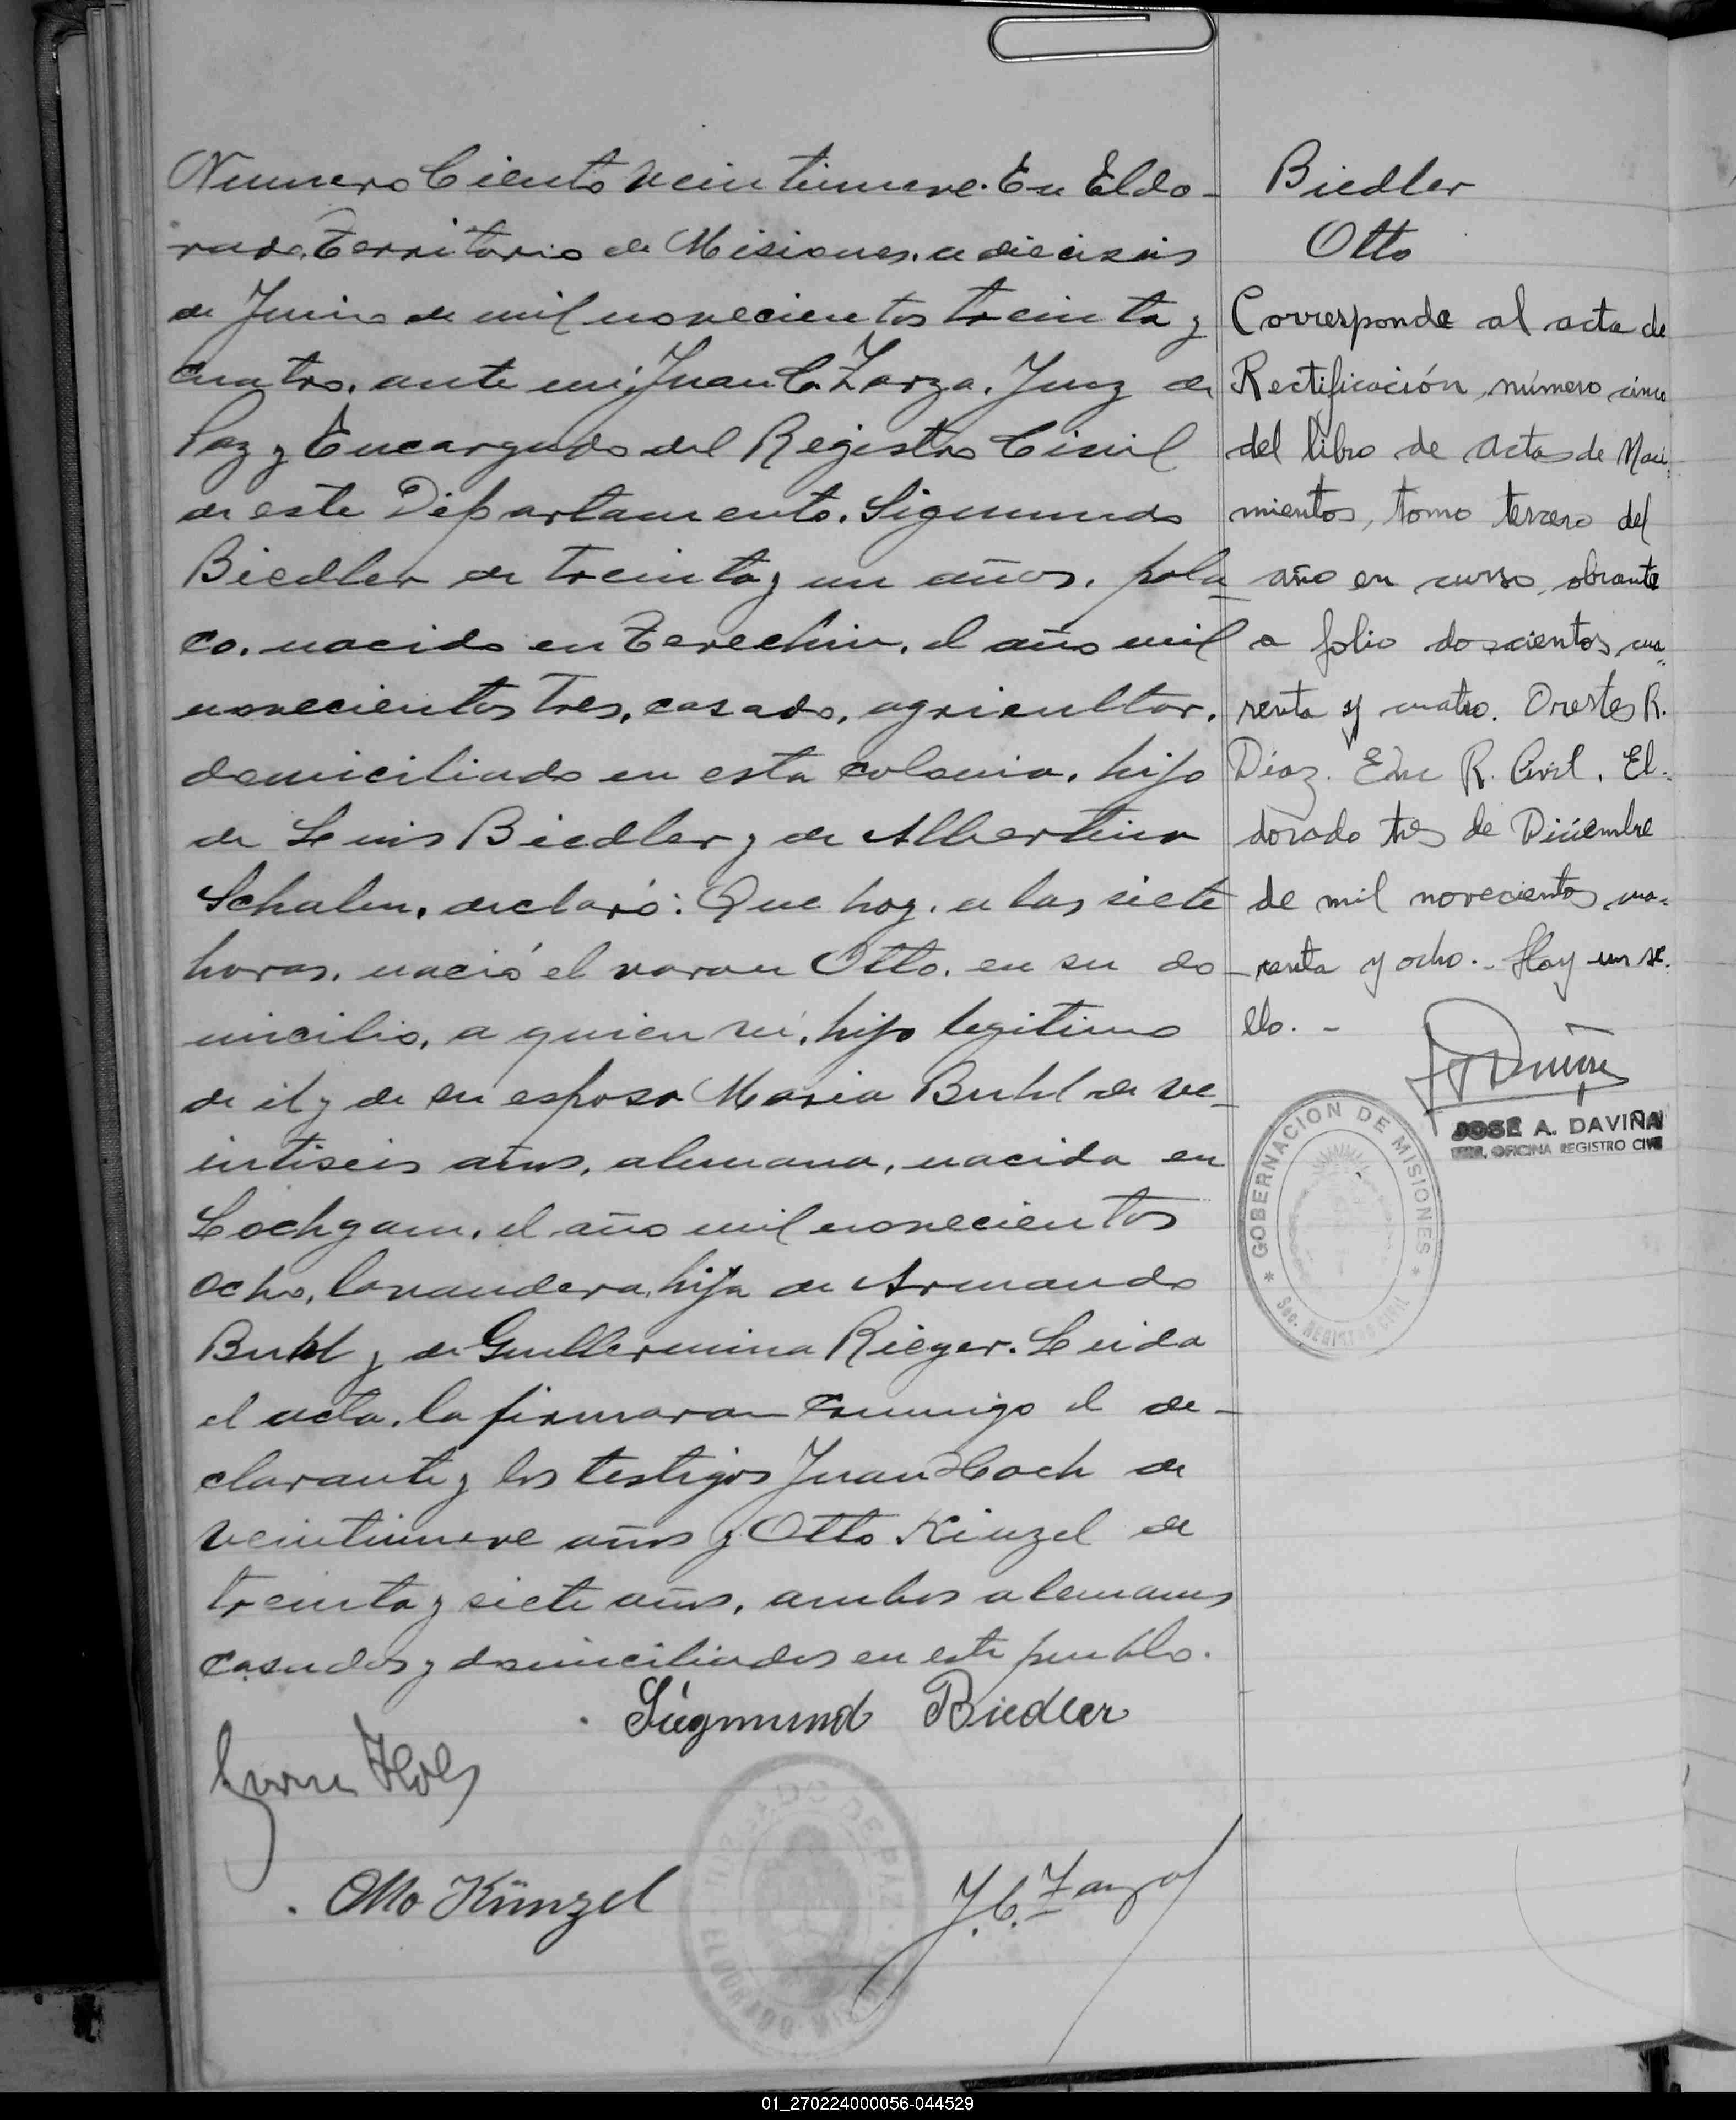 Numero Ciento veintinueve. En Eldo-
rado, Territorio de Misiones, a dieciseis
de Junio de mil novecientos treinta y
cuatro, ante mi, Juan C. Zarza, Juez de
Paz y Encargado del Registro Civil
de este Departamento. Sigmundo
Biedler de treinta y un años, pola
co, nacido en Terechin, el año mil
novecientos tres, casado, agricultor,
domiciliado en esta colonia, hijo
de Luis Biedler y de Albertina
declaró: Que hoy, a las siete
horas, nació el varon Otto, en su do-
micilio, a quien vi, hijo legitimo
de él y de su esposa Maria Buhl de ve-
intiseis años, alemana, nacida en
Lochgam, el año mil novecientos
ocho, lavandera, hija de Armando
Buhl y de Guillermina Rieger. Leida
el acta, la firmaron conmigo el de-
clarante y los testigos Juan de
veintinueve años y Otto Kinzel de
treinta y siete años, ambos alemanes
casados y domiciliados en este pueblo.
Siegmund Biedler
Otto Künzel
J. C. Zarza
JUZGADO DE PAZ
ELDORADO
Biedler
Otto
Corresponde al acta de
Rectificación, número cinco
del libro de actas de Naci-
mientos, tomo tercero del
año en curso, obrante
a folio doscientos cua-
renta y cuatro. Orestes R.
Díaz. Enc R. Civil. El-
dorado tres de Diciembre
de mil novecientos cua-
renta y ocho.- Hay un se-
llo.-
JOSE A. DAVIÑA
OFICINA REGISTRO CIVIL
* GOBERNACION DE MISIONES *
Sec. REGISTRO CIVIL
01_270224000056-044529